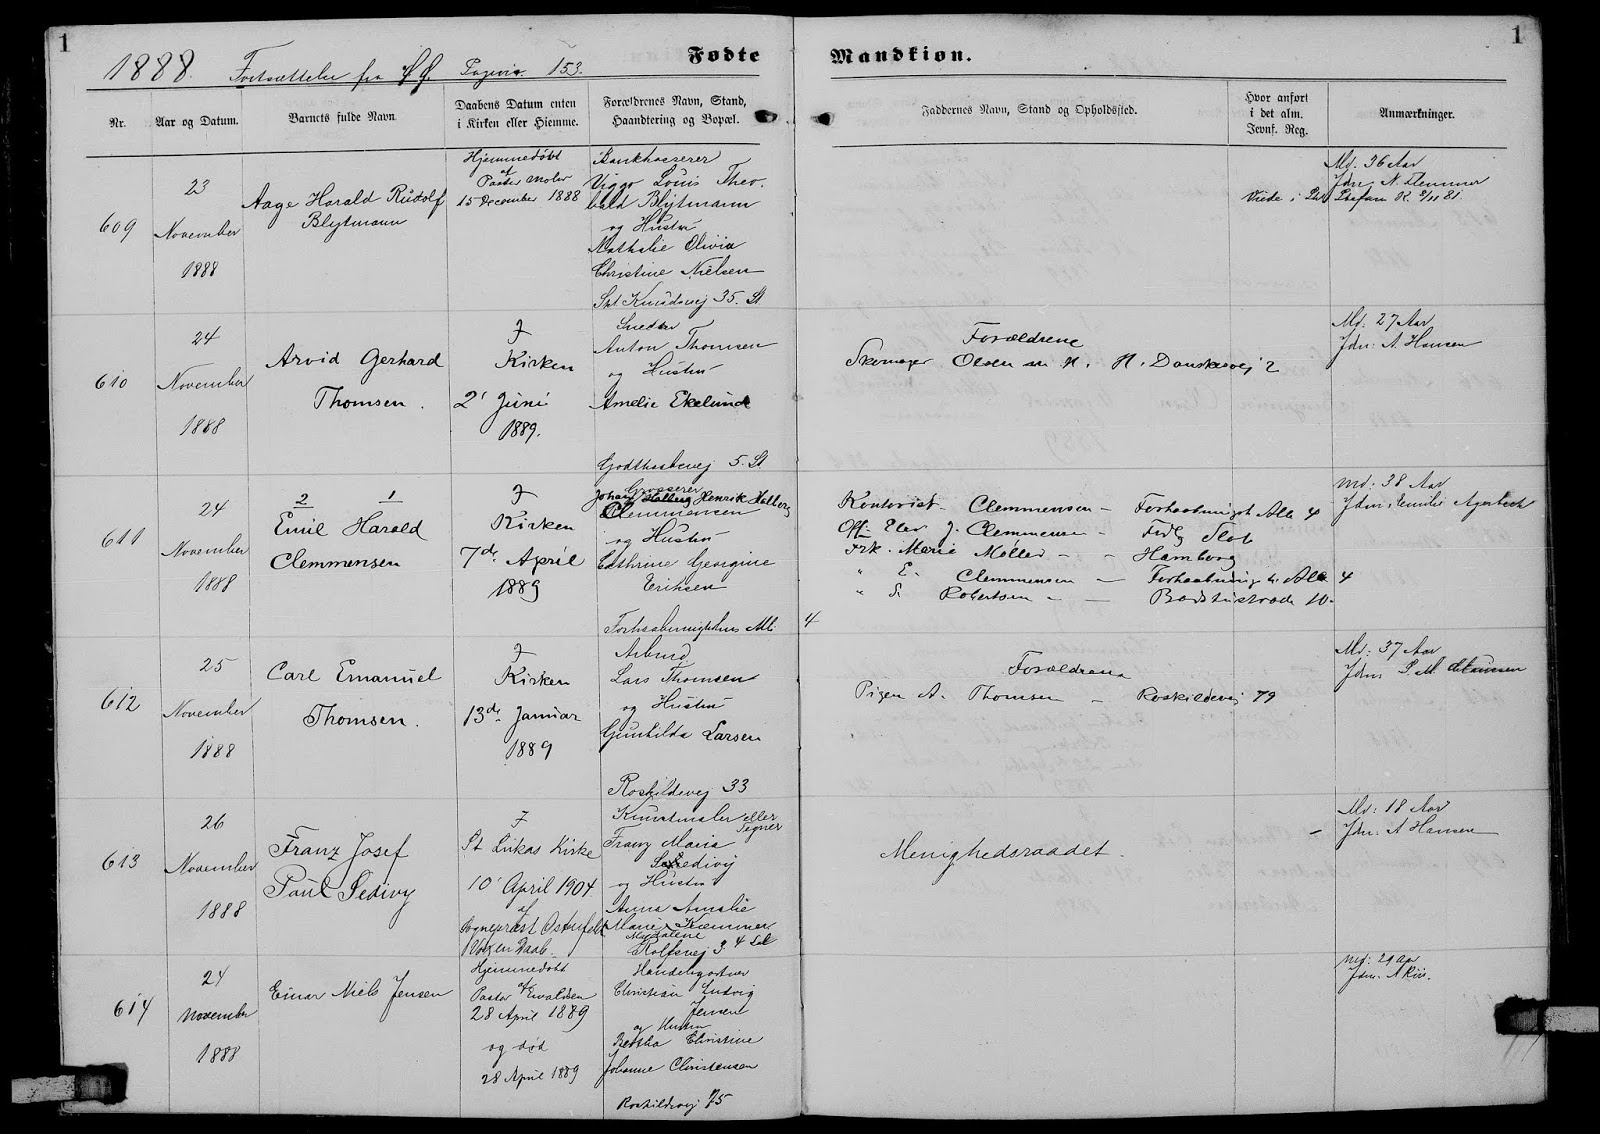 1
1
1888. Fortsættelse fra Pagina 153.
Fødte
Mandkiøn.
Nr.
Aar og Datum.
Barnets fulde Navn.
Daabens Datum enten
i Kirken eller Hiemme.
Forældrenes Navn, Stand,
Haandtering og Bopæl.
Faddernes Navn, Stand og Opholdssted.
Hvor anført
i det alm.
Jevnf. Reg.
Anmærkninger.
609
23
November
1888
Aage Harald Rudolf
Blytmann
Hjemmedøbt
af
Pastor Møller
15 December 1888
Bankkasserer
Viggo Louis Theo-
bald Blytmann
og Hustru
Nathalie Olivia
Christine Nielsen
Skt. Knudsvej 35. St
Md. 36 Aar
Jdm. N. Flemmer
Viede i Stefans K. 11 81.
610
24
November
1888
Arvid Gerhard
Thomsen.
I
Kirken
2' Juni
1889.
Snedker
Anton Thomsen
og Hustru
Amelie Ekelund
Godthaabsvej 5. St
Forældrene
Skomager Olsen H. Danskesvej 2
Md. 27 Aar
Jdm. A. Hansen
611
24
November
1888
2 1
Emil Harald
Clemmensen
I
Kirken
7de April
1889
Grosserer
Johan Halberg Henrik Halberg
Clemmensen
og Hustru
Cathrine Georgine
Eriksen
Forhaabningsholms Alle
4
Kontorist Clemmensen - Forhaabningsh Alle 4
Off. Elev J. Clemmensen - Frdbg Slot
Frk. Marie Møller - - Hamborg
" E. Clemmensen - Forhaabningsh. Alle 4
" S. Robertsen - - Badstustræde 10.
Md. 38 Aar
Jdm. Emilie Agerbech
612
25
November
1888
Carl Emanuel
Thomsen.
I
Kirken
13de Januar
1889
Arbmd
Lars Thomsen
og Hustru
Gunhilda Larsen
Roskildevej 33
Forældrene
Pigen A. Thomsen - Roskildevej 79
Md. 37 Aar
Jdm. P. M. Claussen
613
26
November
1888
Franz Josef
Paul Sedivy
I
St Lukas Kirke
10' April 1904
af
Sognepræst Ostenfeldt
Kunstmaler eller
Tegner
Franz Maria
Sedivy
og Hustru
Anna Amalie
Marie Kræmmer
Magdalene
Rolfsvej 3. 4 Sal
Menighedsraadet.
Md. 18 Aar
Jdm. A Hansen
614
24
November
1888
Einar Niels Jensen
Hjemmedøbt
af
Pastor Ewaldsen
28 April 1889
og død
28 April 1889
Handelsgartner
Christian Ludvig
Jensen
og Hustru
Bertha Christine
Johanne Christensen
Roskildevej 75
Md. 29 Aar
Jdm. A Riis.